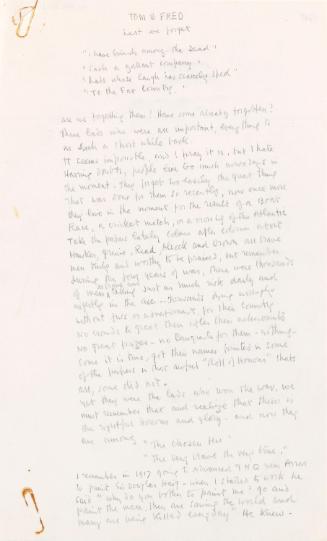 TOM & FRED
Lest we forget
"I have friends among the Dead"
"Such a gallant company"
"Lads whose laugh has scarcely sped"
"To the Far Country."
Are we forgetting them? Have some already forgotten?
These lads who were all important, everything to
us such a short while back.
It seems impossible, and I pray it is, but I hate
Having doubts, people live so much nowadays in
the moment. They forget so easily the great things
that was done for them so recently, now once more
they live in the moment for the result of a Boat
Race, a cricket match, or a crossing of the Atlantic
Take the papers lately column after column about
Hawker, Grieve, Read, Alcock and Brown all brave
men truly and worthy to be praised, but remember
during the long years of war, there were thousands
of men risking just as much risk daily and
nightly in the air – thousands dying willingly
without fuss or advertisement, for their country
No crowds to greet them after their adventures
No great prizes – no Banquets for them – nothing –
some it is true, got their names printed in some
of the papers in that awful "Roll of Honour" that's
all, some did not.
Yet they were the lads who won the war, we
must remember that and realize that theirs is
the rightful honour and glory. and now they
are among "The Chosen Few"
"The Very Brave The Very True."
I remember in 1917 going to advanced G.H.Q. near Arras
to paint Sir Douglas Haig – when I started to work he
said "why do you bother to paint me? go and
paint the men, they are saving the world and
many are being killed everyday" He knew –